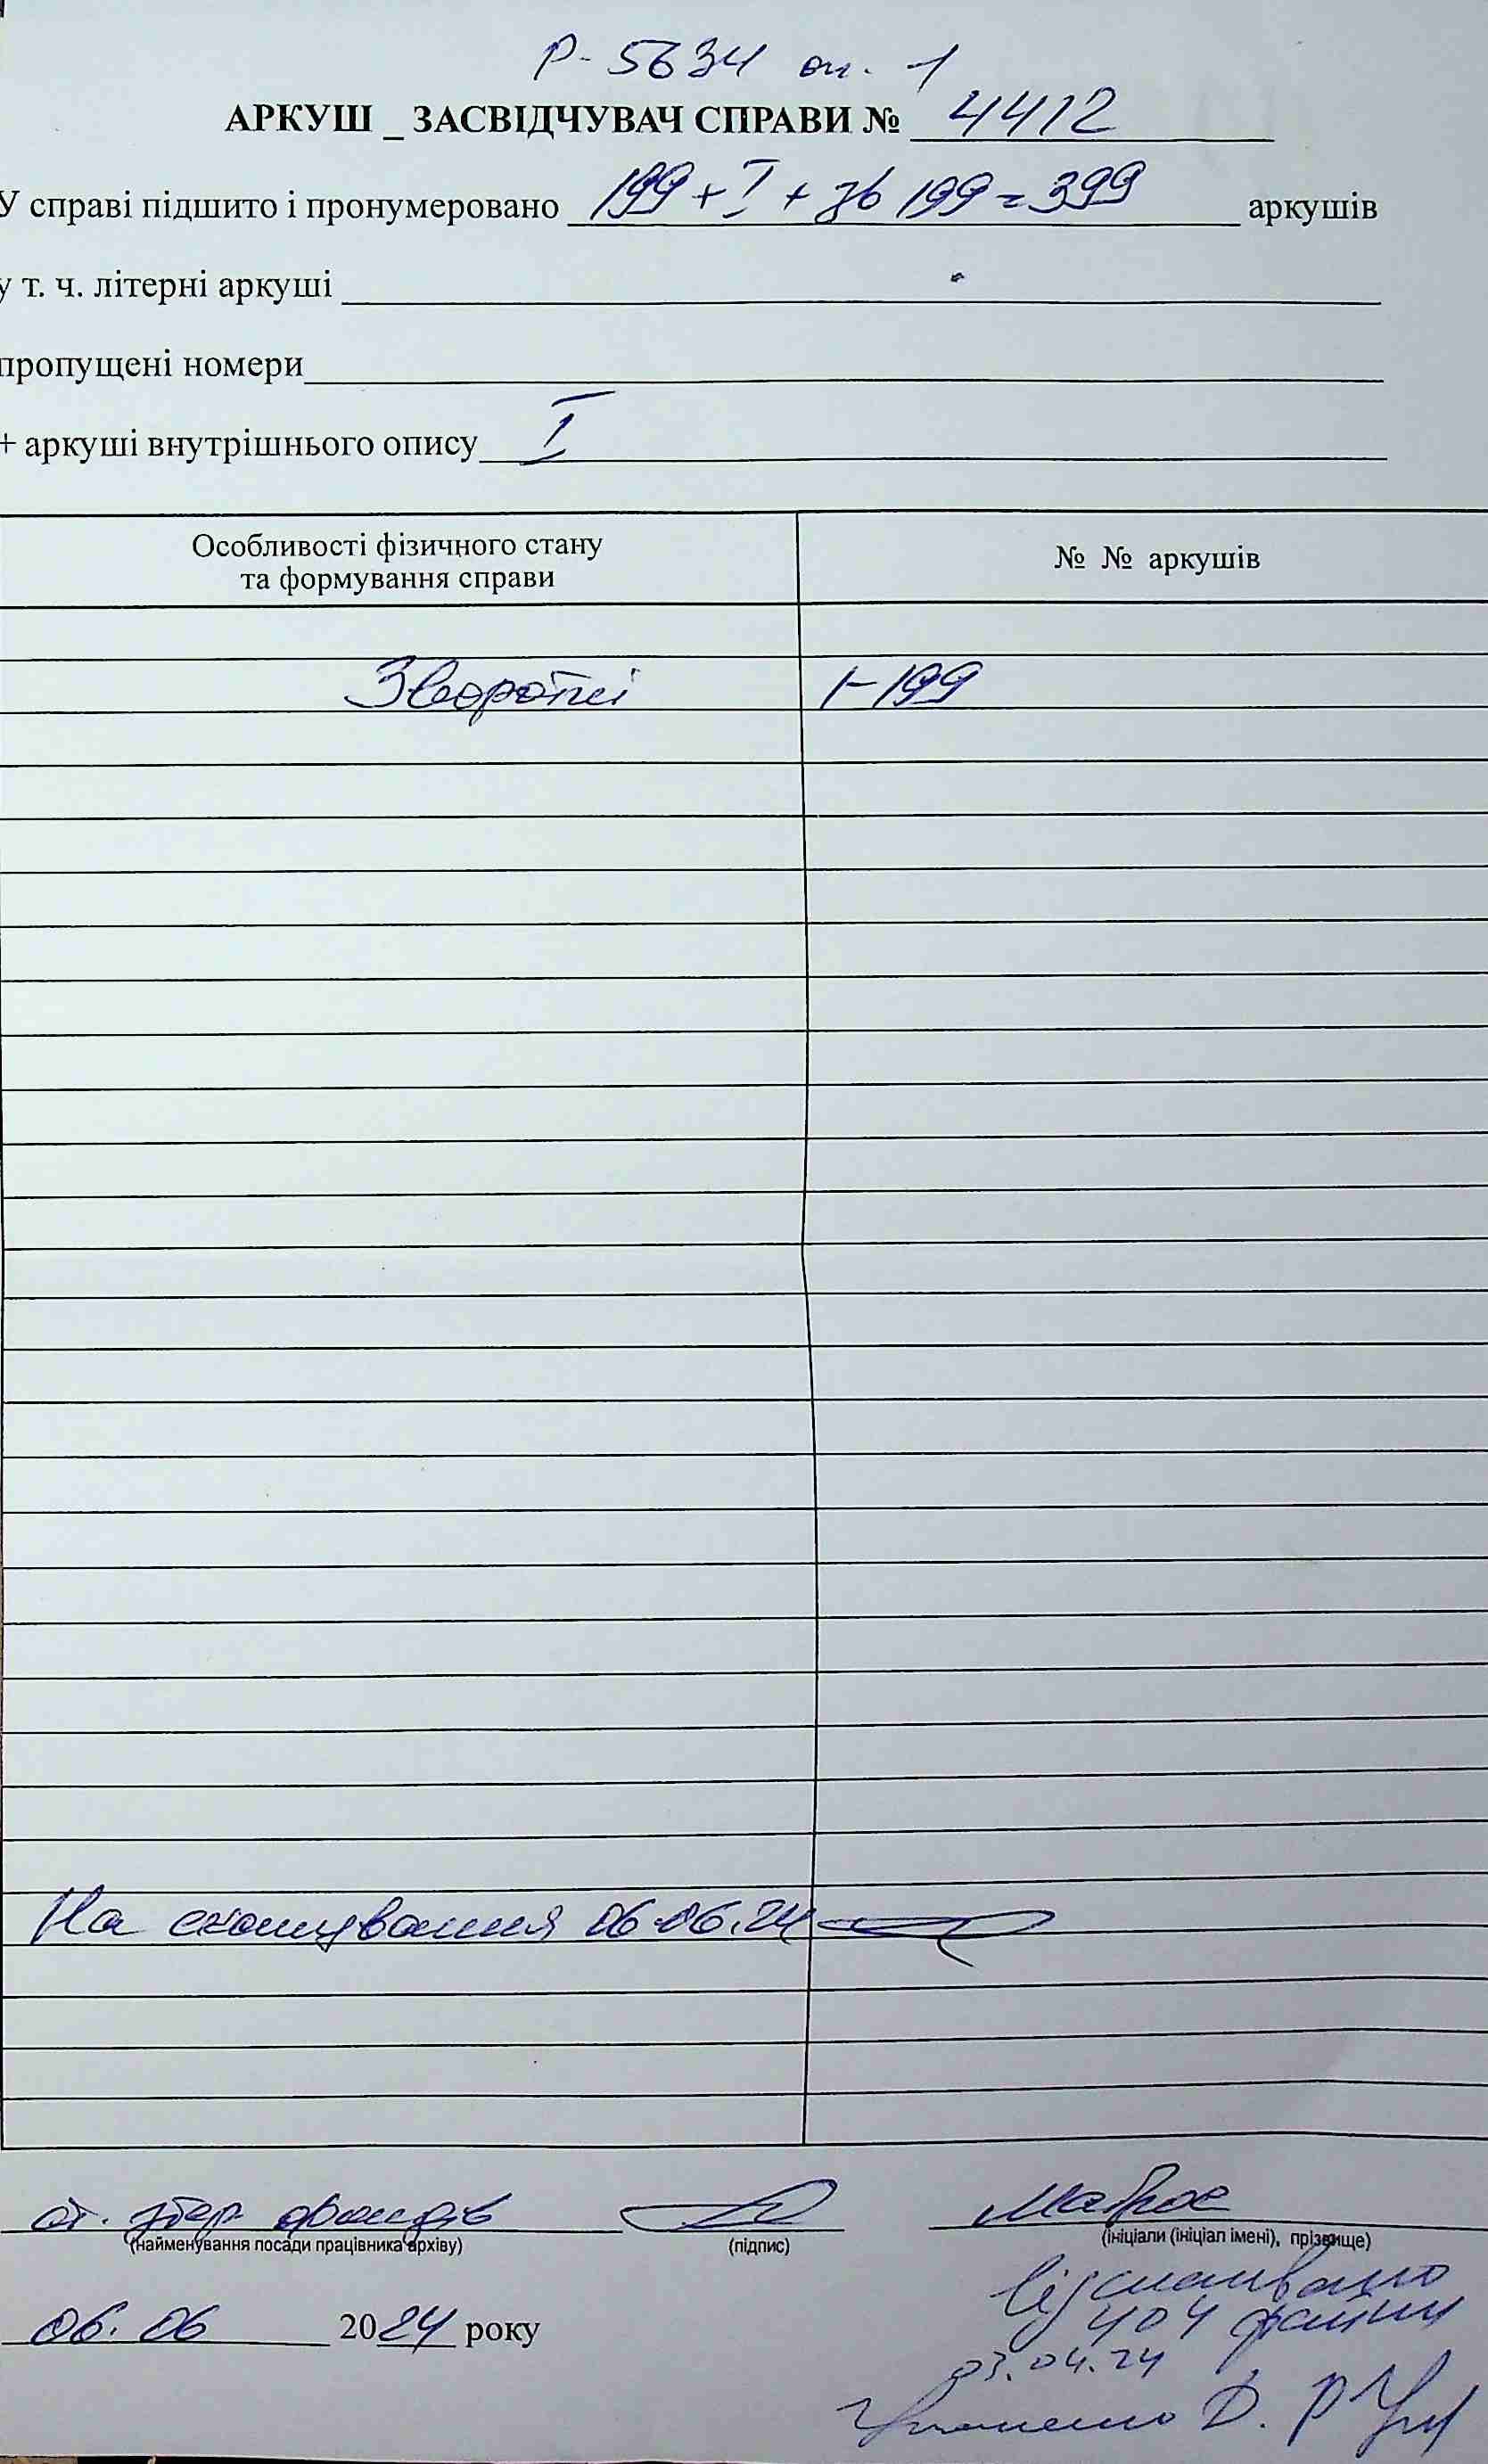 Р-5634 оп. 1
АРКУШ _ ЗАСВІДЧУВАЧ СПРАВИ № 4412
У справі підшито і пронумеровано 199 + I + зв 199 = 399 аркушів
у т. ч. літерні аркуші
пропущені номери
+ аркуші внутрішнього опису I
Особливості фізичного стану та формування справи
№ № аркушів
Зворотні 1-199
На сканування 06.06.24
ст. збер. фондів
(найменування посади працівника архіву) (підпис) (ініціали (ініціал імені), прізвище)
Відскановано
06. 06 2024 року
404 файли
03.04.24
Д. Р.